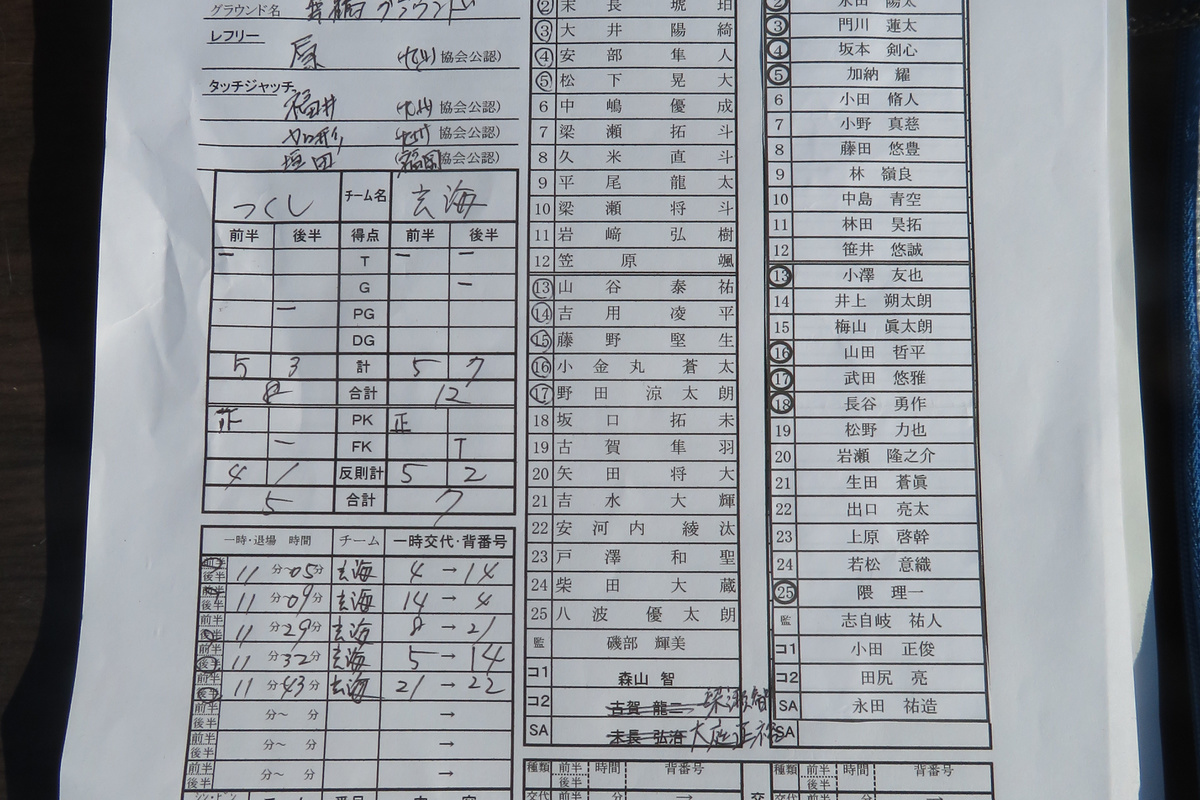 グラウンド名 グラウンド
レフリー
原 (九州 協会公認)
タッチジャッチ
福井 (九州 協会公認)
(九州 協会公認)
垣田 (福岡 協会公認)
つくし チーム名 玄海
前半 後半 得点 前半 後半
一 T 一 一
G 一
一 PG
DG
5 3 計 5 7
8 合計 12
正 PK 正
一 FK T
4 1 反則計 5 2
5 合計 7
一時・退場 時間 チーム 一時交代・背番号
前半 後半 11 分~05分 玄海 4 → 14
前半 後半 11 分~09分 玄海 14 → 4
前半 後半 11 分~29分 玄海 8 → 21
前半 後半 11 分~32分 玄海 5 → 14
前半 後半 11 分~43分 玄海 21 → 22
前半 後半 分~ 分 →
前半 後半 分~ 分 →
前半 後半 分~ 分 →
② 末長 琥珀
③ 大井 陽綺
④ 安部 隼人
⑤ 松下 晃大
6 中嶋 優成
7 梁瀬 拓斗
8 久米 直斗
9 平尾 龍太
10 梁瀬 将斗
11 岩﨑 弘樹
12 笠原 颯
⑬ 山谷 泰祐
⑭ 吉用 凌平
⑮ 藤野 堅生
⑯ 小金丸 蒼太
⑰ 野田 涼太朗
18 坂口 拓未
19 古賀 隼羽
20 矢田 将大
21 吉水 大輝
22 安河内 綾汰
23 戸澤 和聖
24 柴田 大蔵
25 八波 優太朗
監 磯部 輝美
コ1 森山 智
コ2 古賀 龍二 梁瀬
SA 末長 弘治 大庭正裕
② 永田 陽太
③ 門川 蓮太
④ 坂本 剣心
⑤ 加納 耀
6 小田 脩人
7 小野 真慈
8 藤田 悠豊
9 林 嶺良
10 中島 青空
11 林田 昊拓
12 笹井 悠誠
⑬ 小澤 友也
14 井上 朔太朗
15 梅山 眞太朗
⑯ 山田 哲平
⑰ 武田 悠雅
⑱ 長谷 勇作
19 松野 力也
20 岩瀬 隆之介
21 生田 蒼眞
22 出口 亮太
23 上原 啓幹
24 若松 意織
㉕ 隈 理一
監 志自岐 祐人
コ1 小田 正俊
コ2 田尻 亮
SA 永田 祐造
SA
種類 前半 後半 時間 背番号
交代 前半 分 →
種類 前半 後半 時間 背番号
交代 前半 分 →